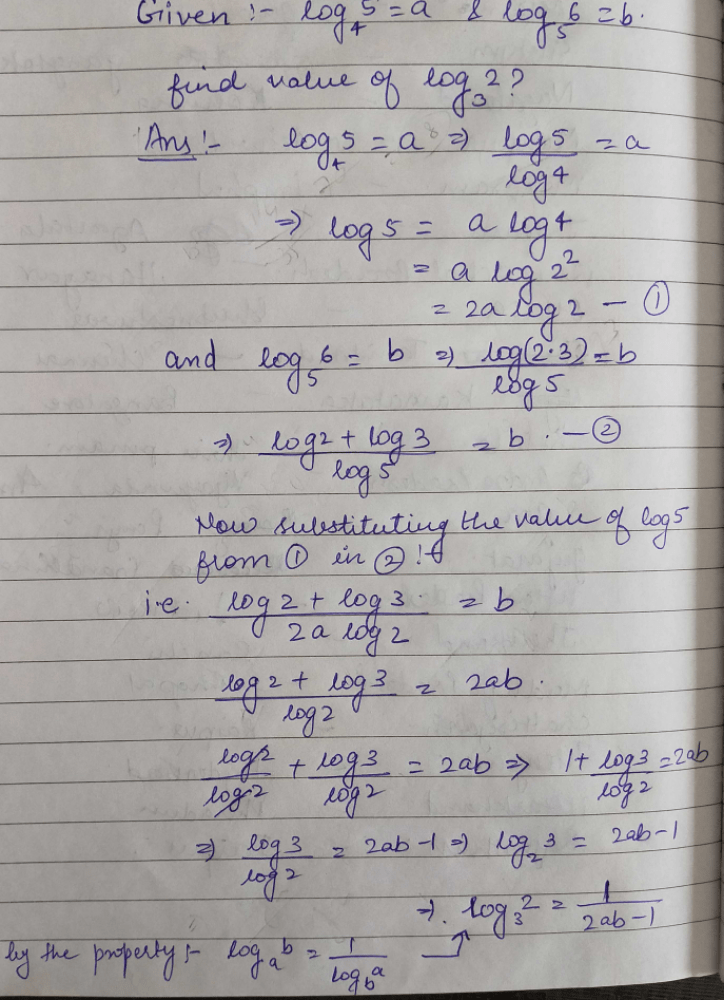 Given :- log₄5 = a & log₅6 = b.
find value of log₃2?
Ans :- log₄5 = a ⇒ log5/log4 = a
⇒ log5 = a log4
= a log2²
= 2a log2 — ①
and log₅6 = b ⇒ log(2·3)/log5 = b
⇒ (log2 + log3)/log5 = b. — ②
Now substituting the value of log5
from ① in ② :-
i.e. (log2 + log3)/(2a log2) = b
(log2 + log3)/log2 = 2ab.
log2/log2 + log3/log2 = 2ab ⇒ 1 + log3/log2 = 2ab
⇒ log3/log2 = 2ab-1 ⇒ log₂3 = 2ab-1
⇒ log₃2 = 1/(2ab-1)
by the property :- logₐb = 1/log_b a